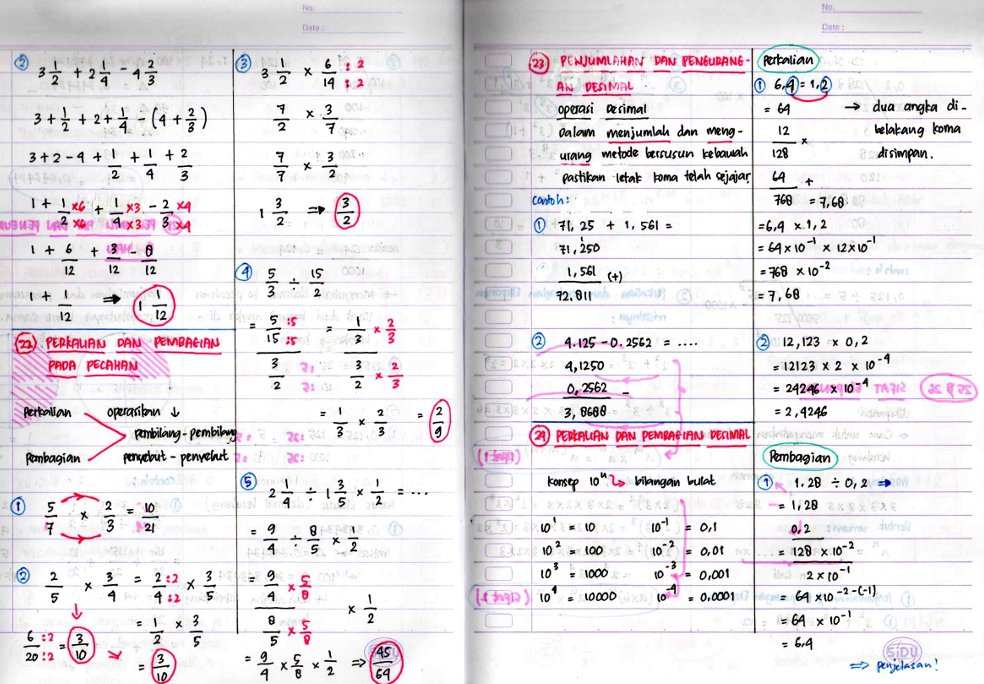 No.
Date :
② 3 1/2 + 2 1/4 - 4 2/3
3 + 1/2 + 2 + 1/4 - (4 + 2/3)
3 + 2 - 4 + 1/2 + 1/4 + 2/3
1 + 1/2 ×6/×6 + 1/4 ×3/×3 - 2/3 ×4/×4
1 + 6/12 + 3/12 - 8/12
1 + 1/12 ⇒ 1 1/12
22 PERKALIAN DAN PEMBAGIAN
PADA PECAHAN
Perkalian operasikan ↓
Pembilang - pembilang
Pembagian penyebut - penyebut
① 5/7 × 2/3 = 10/21
② 2/5 × 3/4 = 2/4 :2/:2 × 3/5
= 1/2 × 3/5
6/20 :2/:2 = 3/10
= 3/10
③ 3 1/2 × 6/14 :2/:2
7/2 × 3/7
7/7 × 3/2
1 3/2 ⇒ 3/2
④ 5/3 ÷ 15/2
= 5/15 :5/:5 / 3/2 = 1/3 × 2/3 / 3/2 × 2/3
= 1/3 × 2/3 = 2/9
⑤ 2 1/4 ÷ 1 3/5 × 1/2 = ...
= 9/4 ÷ 8/5 × 1/2
= 9/4 × 5/8 / 8/5 × 5/8 × 1/2
= 9/4 × 5/8 × 1/2 ⇒ 45/64
No.
Date :
23 PENJUMLAHAN DAN PENGURANG-
AN DESIMAL
operasi Desimal
Dalam menjumlah dan meng-
urang metode bersusun kebawah
pastikan letak koma telah sejajar
Contoh :
① 71,25 + 1,561 =
71,250
1,561 (+)
72,811
② 4.125 - 0.2562 = ....
4,1250
0,2562 -
3,8688
24 PERKALIAN DAN PEMBAGIAN DESIMAL
Konsep 10ⁿ → bilangan bulat
10¹ = 10 10⁻¹ = 0,1
10² = 100 10⁻² = 0,01
10³ = 1000 10⁻³ = 0,001
10⁴ = 10000 10⁻⁴ = 0,0001
Perkalian
① 6,4 = 1,2
= 64 → dua angka di-
12 × belakang koma
128 disimpan.
64 +
768 = 7,68
= 6,4 × 1,2
= 64 × 10⁻¹ × 12 × 10⁻¹
= 768 × 10⁻²
= 7,68
② 12,123 × 0,2
= 12123 × 2 × 10⁻⁴
= 24246 × 10⁻⁴
= 2,4246
Pembagian
① 1,28 ÷ 0,2 ⇒
= 1,28
0,2
= 128 × 10⁻²
2 × 10⁻¹
= 64 × 10⁻²⁻⁽⁻¹⁾
= 64 × 10⁻¹
= 6,4
SiDU
⇒ penjelasan!